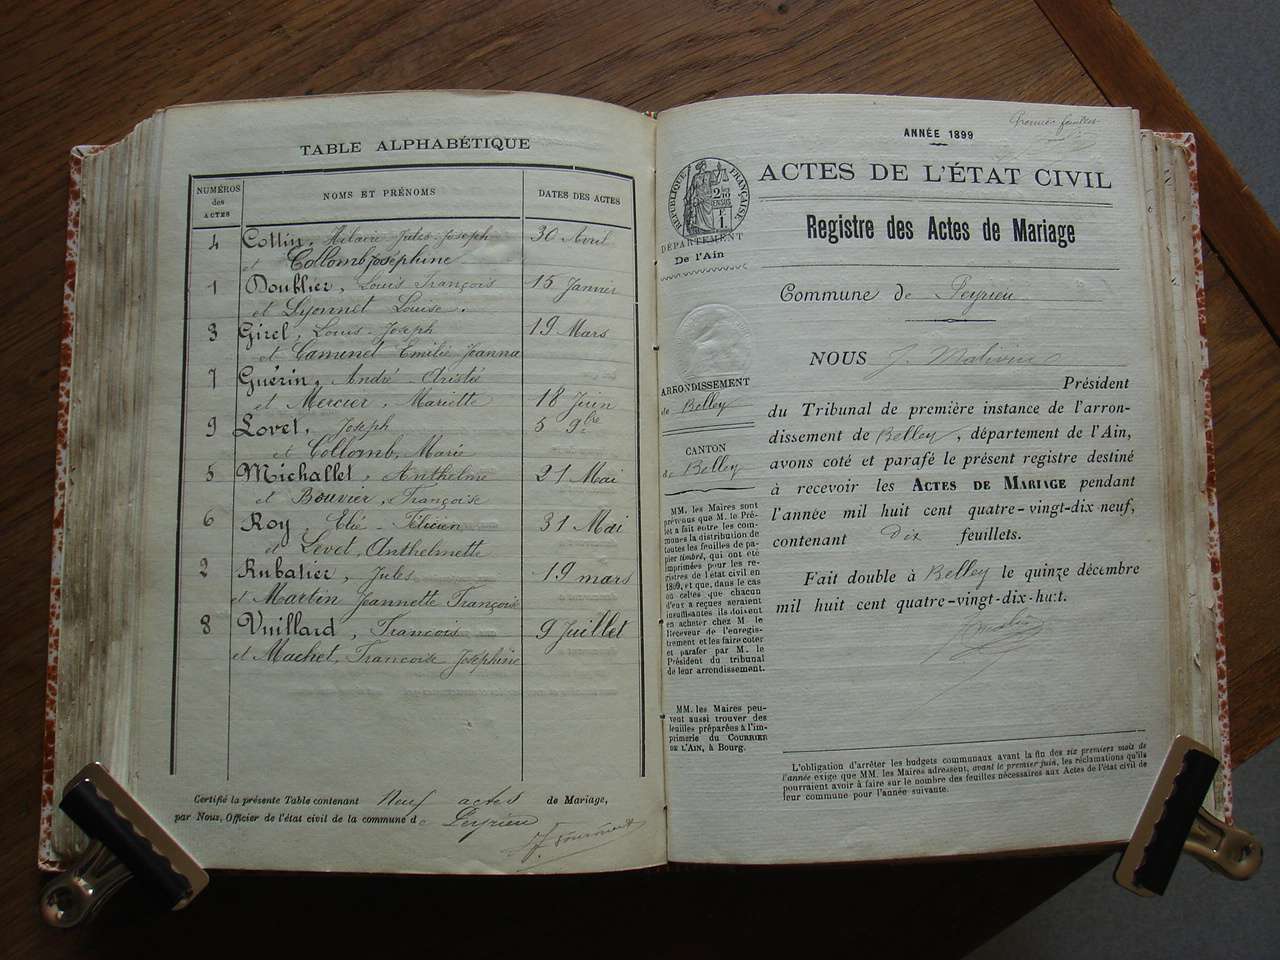 TABLE ALPHABÉTIQUE
NUMÉROS
des
ACTES
NOMS ET PRÉNOMS
DATES DES ACTES
4 Cottin, Hilaire Jules Joseph 30 Avril
et Collomb Josephine
1 Doublier, Louis François 15 Janvier
et Lyonnet Louise.
3 Girel, Louis-Joseph 19 Mars
et Caminet Emilie Joanna
7 Guérin, André Aristée
et Mercier, Mariette 18 Juin
9 Lovet, Joseph 5 9bre
et Collomb, Marie
5 Michallet, Anthelme 21 Mai
et Bouvier, Françoise
6 Roy, Elie-Félicien 31 Mai
et Levet, Anthelmette
2 Rubatier, Jules 19 mars
et Martin Jeannette Françoise
8 Vuillard, François 9 Juillet
et Machet, Françoise Josephine
Certifié la présente Table contenant Neuf actes de Mariage,
par Nous, Officier de l'état civil de la commune de Peyrieu
ANNÉE 1899
ACTES DE L'ÉTAT CIVIL
RÉPUBLIQUE FRANÇAISE
2/10 EN SUS
F 1
DÉPARTEMENT
De l'Ain
Registre des Actes de Mariage
Commune de Peyrieu
NOUS
ARRONDISSEMENT
de Belley
CANTON
de Belley
Président
du Tribunal de première instance de l'arron-
dissement de Belley, département de l'Ain,
avons coté et parafé le présent registre destiné
à recevoir les ACTES DE MARIAGE pendant
l'année mil huit cent quatre-vingt-dix neuf,
contenant Dix feuillets.
Fait double à Belley le quinze décembre
mil huit cent quatre-vingt-dix-huit.
MM. les Maires sont
prévenus que M. le Pré-
fet a fait entre les com-
munes la distribution de
toutes les feuilles de pa-
pier timbré, qui ont été
imprimées pour les re-
gistres de l'état civil en
1899, et que, dans le cas
où celles que chacun
d'eux a reçues seraient
insuffisantes ils doivent
en acheter chez M. le
Receveur de l'enregis-
trement et les faire coter
et parafer par M. le
Président du tribunal
de leur arrondissement.
MM. les Maires peu-
vent aussi trouver des
feuilles préparées à l'im-
primerie du COURRIER
DE L'AIN, à Bourg.
L'obligation d'arrêter les budgets communaux avant la fin des six premiers mois de
l'année exige que MM. les Maires adressent, avant le premier juin, les réclamations qu'ils
pourraient avoir à faire sur le nombre des feuilles nécessaires aux Actes de l'état civil de
leur commune pour l'année suivante.